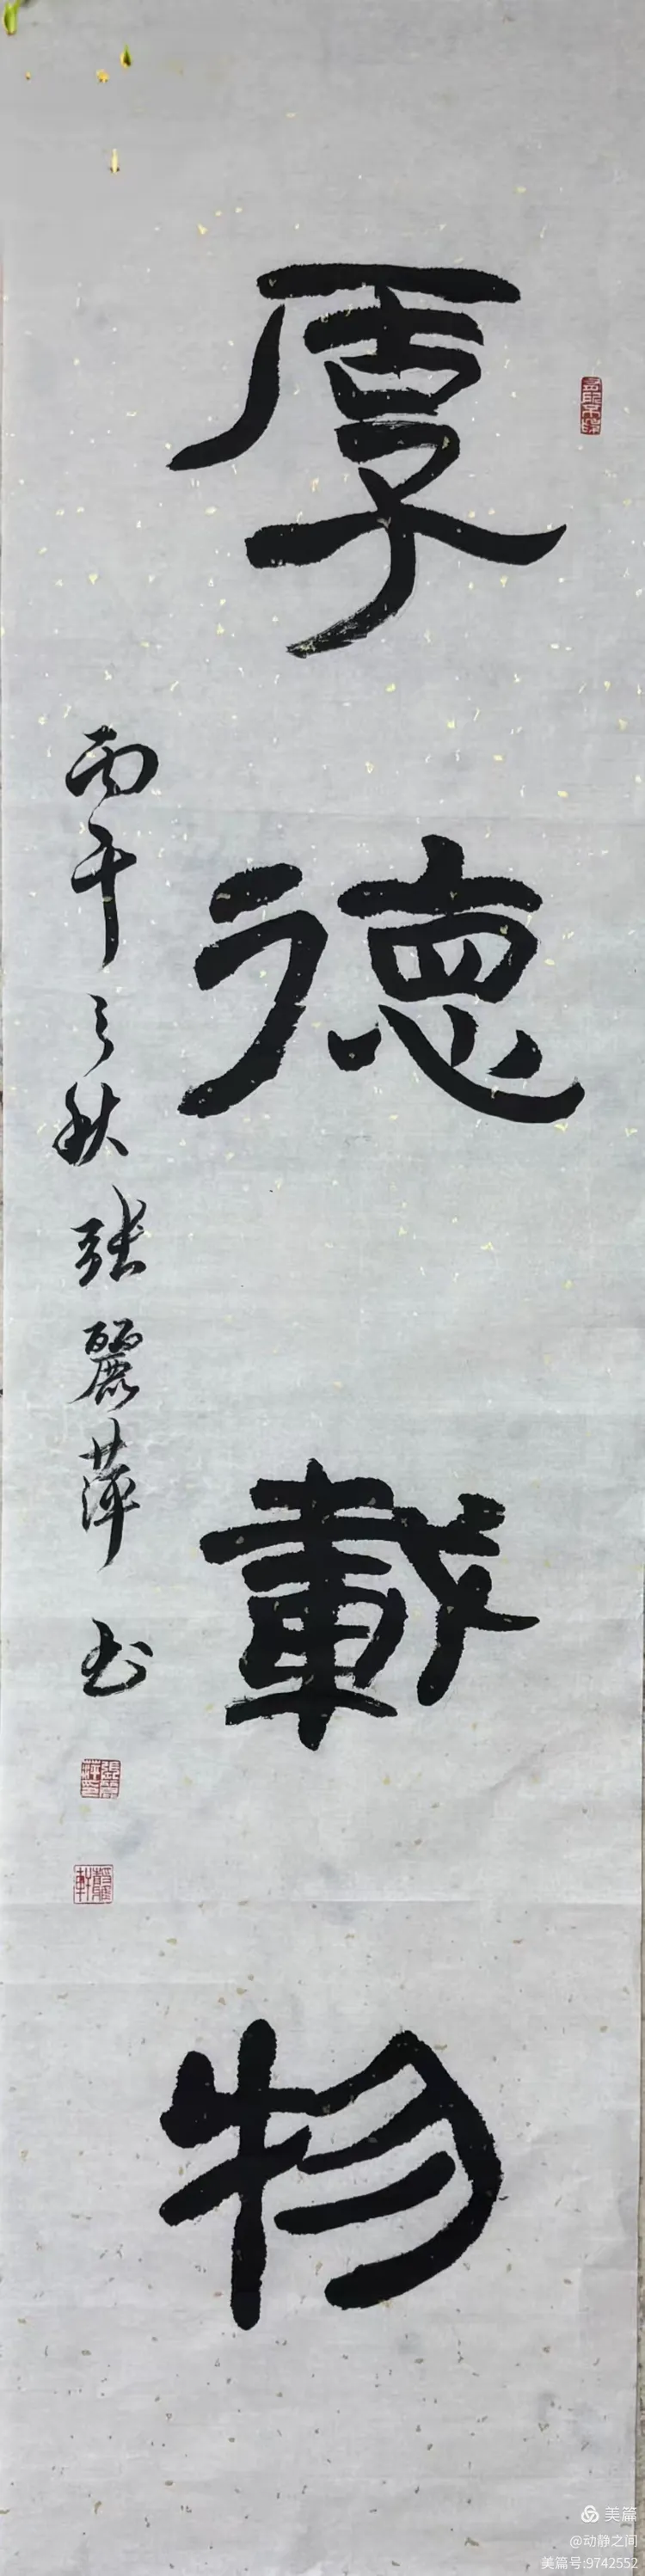 厚德載物
丙午之秋張麗萍书
美篇
@动静之间
美篇号:9742552